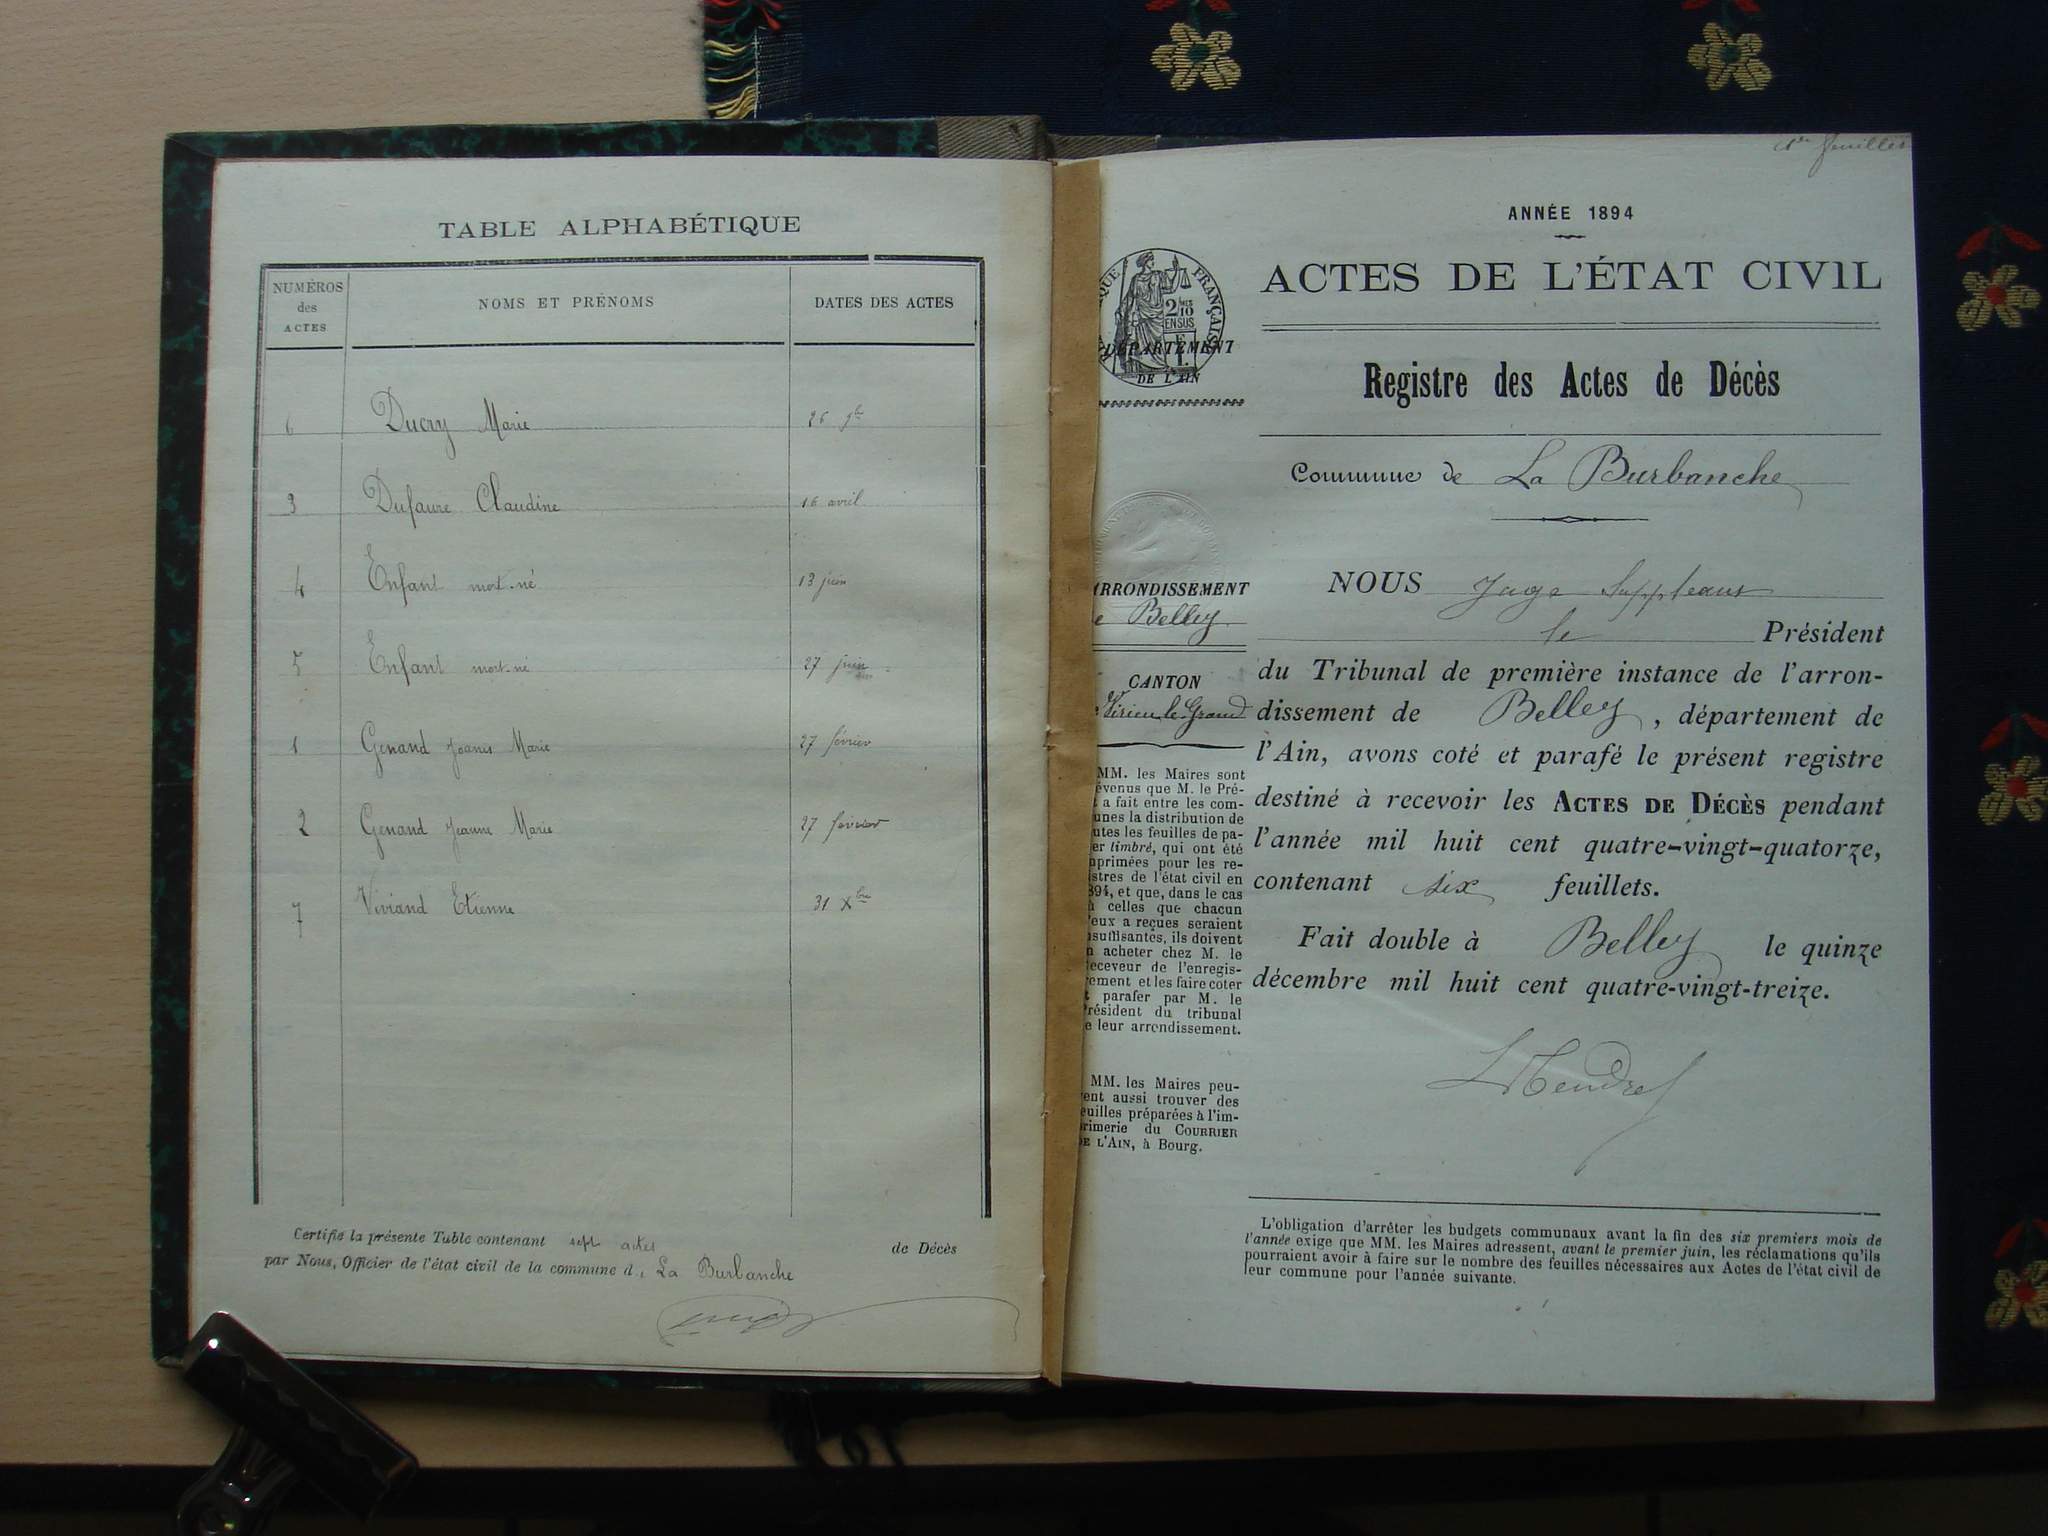 TABLE ALPHABÉTIQUE
NUMÉROS des ACTES
NOMS ET PRÉNOMS
DATES DES ACTES
6 Ducry Marie 26 9bre
3 Dufaure Claudine 16 avril
4 Enfant mort-né 13 juin
5 Enfant mort-né 27 juin
1 Genand Joanis Marie 27 février
2 Genand Jeanne Marie 27 février
7 Viviand Etienne 31 Xbre
Certifié la présente Table contenant sept actes de Décès
par Nous, Officier de l'état civil de la commune d, La Burbanche
1er feuillet
ANNÉE 1894
ACTES DE L'ÉTAT CIVIL
FRANÇAISE
2/10
EN SUS
DÉPARTEMENT
DE L'AIN
Registre des Actes de Décès
Commune de La Burbanche
ARRONDISSEMENT
e Belley
CANTON
Virieu-le-Grand
MM. les Maires sont
évenus que M. le Pré-
t a fait entre les com-
unes la distribution de
utes les feuilles de pa-
er timbré, qui ont été
nprimées pour les re-
istres de l'état civil en
894, et que, dans le cas
ù celles que chacun
'eux a reçues seraient
nsuffisantes, ils doivent
n acheter chez M. le
eceveur de l'enregis-
rement et les faire coter
t parafer par M. le
résident du tribunal
e leur arrondissement.
MM. les Maires peu-
ent aussi trouver des
euilles préparées à l'im-
rimerie du COURRIER
DE L'AIN, à Bourg.
NOUS Juge Suppléant
le Président
du Tribunal de première instance de l'arron-
dissement de Belley, département de
l'Ain, avons coté et parafé le présent registre
destiné à recevoir les ACTES DE DÉCÈS pendant
l'année mil huit cent quatre-vingt-quatorze,
contenant six feuillets.
Fait double à Belley le quinze
décembre mil huit cent quatre-vingt-treize.
L'obligation d'arrêter les budgets communaux avant la fin des six premiers mois de
l'année exige que MM. les Maires adressent, avant le premier juin, les réclamations qu'ils
pourraient avoir à faire sur le nombre des feuilles nécessaires aux Actes de l'état civil de
leur commune pour l'année suivante.